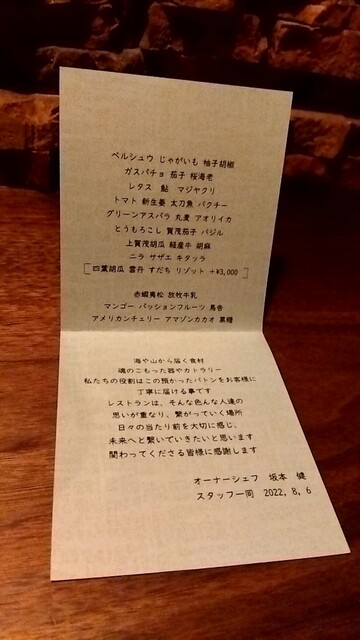 ペルシュウ じゃがいも 柚子胡椒
ガスパチョ 茄子 桜海老
レタス 鮎 マジヤクリ
トマト 新生姜 太刀魚 パクチー
グリーンアスパラ 丸麦 アオリイカ
とうもろこし 賀茂茄子 バジル
上賀茂胡瓜 経産牛 胡麻
ニラ サザエ キタッラ
[四葉胡瓜 雲丹 すだち リゾット +¥3,000]
赤蝦夷松 放牧牛乳
マンゴー パッションフルーツ 馬告
アメリカンチェリー アマゾンカカオ 黒糖
海や山から届く食材
魂のこもった器やカトラリー
私たちの役割はこの預かったバトンをお客様に
丁寧に届ける事です
レストランは、そんな色んな人達の
思いが重なり、繋がっていく場所
日々の当たり前を大切に感じ、
未来へと繋いでいきたいと思います
関わってくださる皆様に感謝します
オーナーシェフ 坂本 健
スタッフ一同 2022, 8, 6